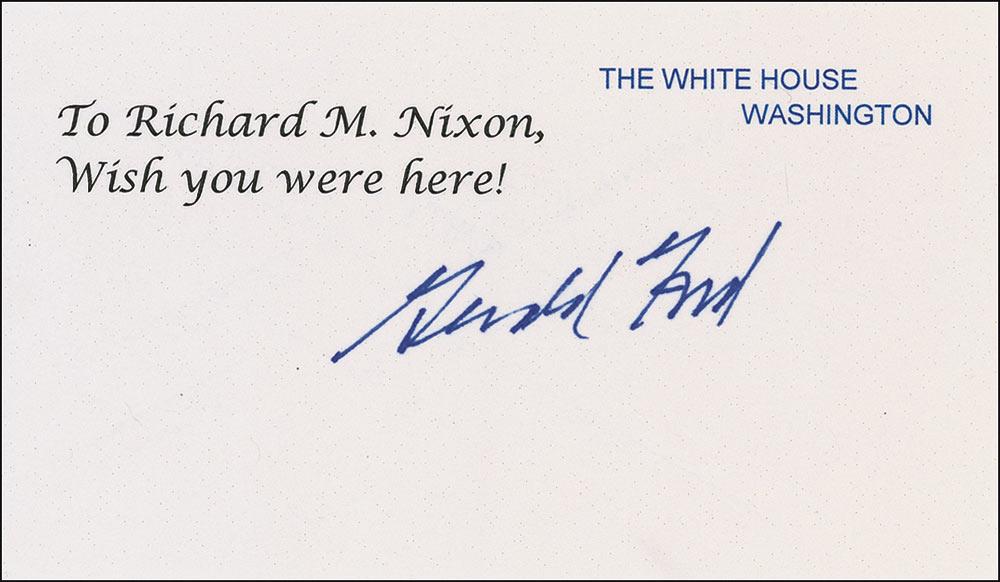 THE WHITE HOUSE
WASHINGTON
To Richard M. Nixon,
Wish you were here!
Gerald Ford